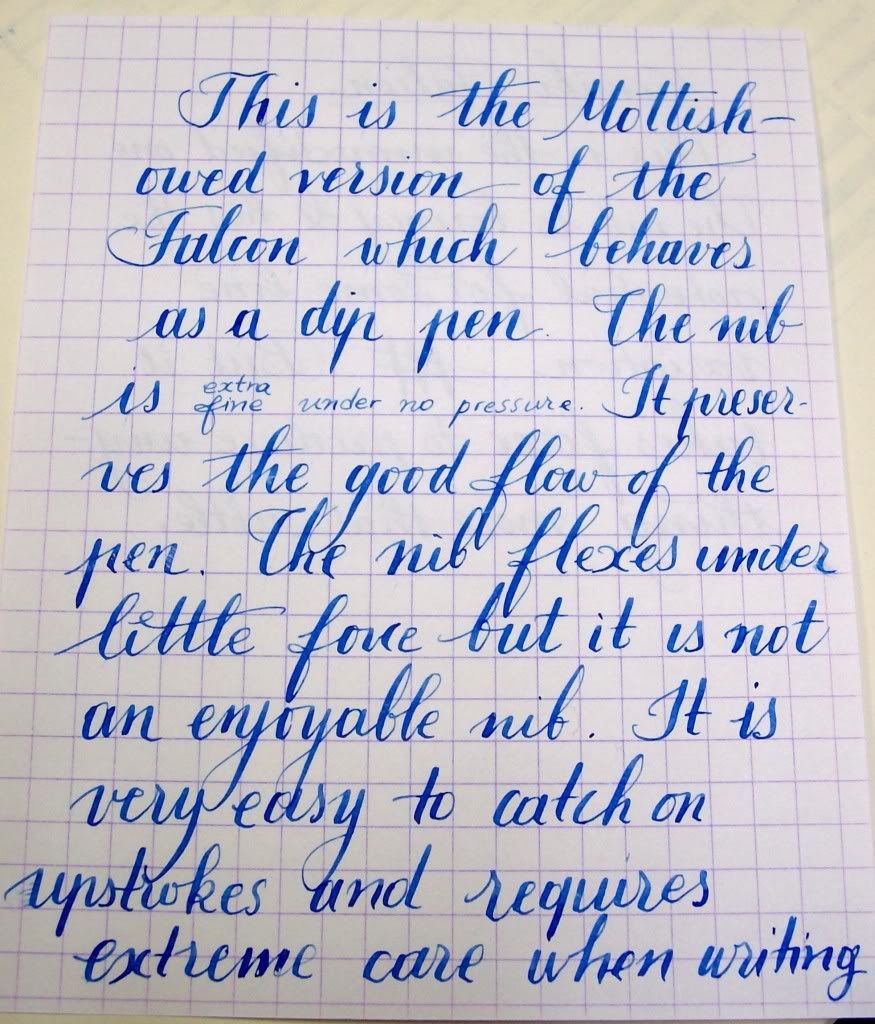 This is the Mottish-
owed version of the
Falcon which behaves
as a dip pen. The nib
is extra fine under no pressure. It preser-
ves the good flow of the
pen. The nib flexes under
little force but it is not
an enjoyable nib. It is
very easy to catch on
upstrokes and requires
extreme care when writing